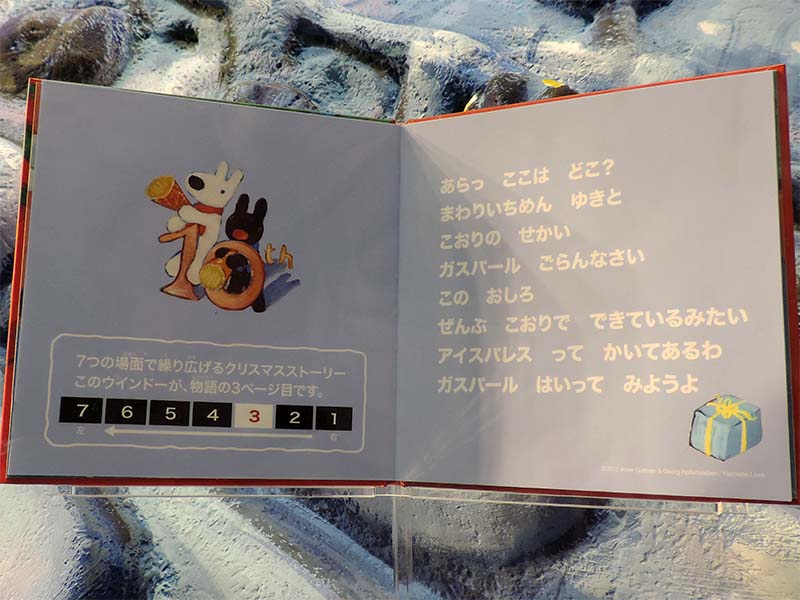 10th
7つの場面で繰り広げるクリスマスストーリー
このウインドーが、物語の3ページ目です。
7 6 5 4 3 2 1
左 右
あらっ ここは どこ?
まわりいちめん ゆきと
こおりの せかい
ガスパール ごらんなさい
この おしろ
ぜんぶ こおりで できているみたい
アイスパレス って かいてあるわ
ガスパール はいって みようよ
Anne Gutman & Georg Hallensleben / Hachette Livre